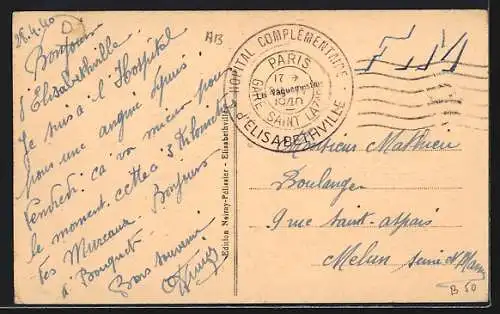 28.4.40
D
AB
Bonjour
d'Elisabethville
Je suis à l'Hospital
pour une angine depuis
Vendredi. ça va mieux pour
le moment. cette à 3 Kilomètres
Les Mureaux. Bonjours
à Bouquet.
Bons souvenir
Edition Neiray-Pelissier - Elisabethville
HOPITAL COMPLEMENTAIRE
D'ELISABETHVILLE
Le Vaguemestre
PARIS
17
1940
GARE SAINT LAZARE
F.M
Monsieur Mathieu
Boulanger
9 rue Saint-aspais
Melun Seine et Marne
B 50